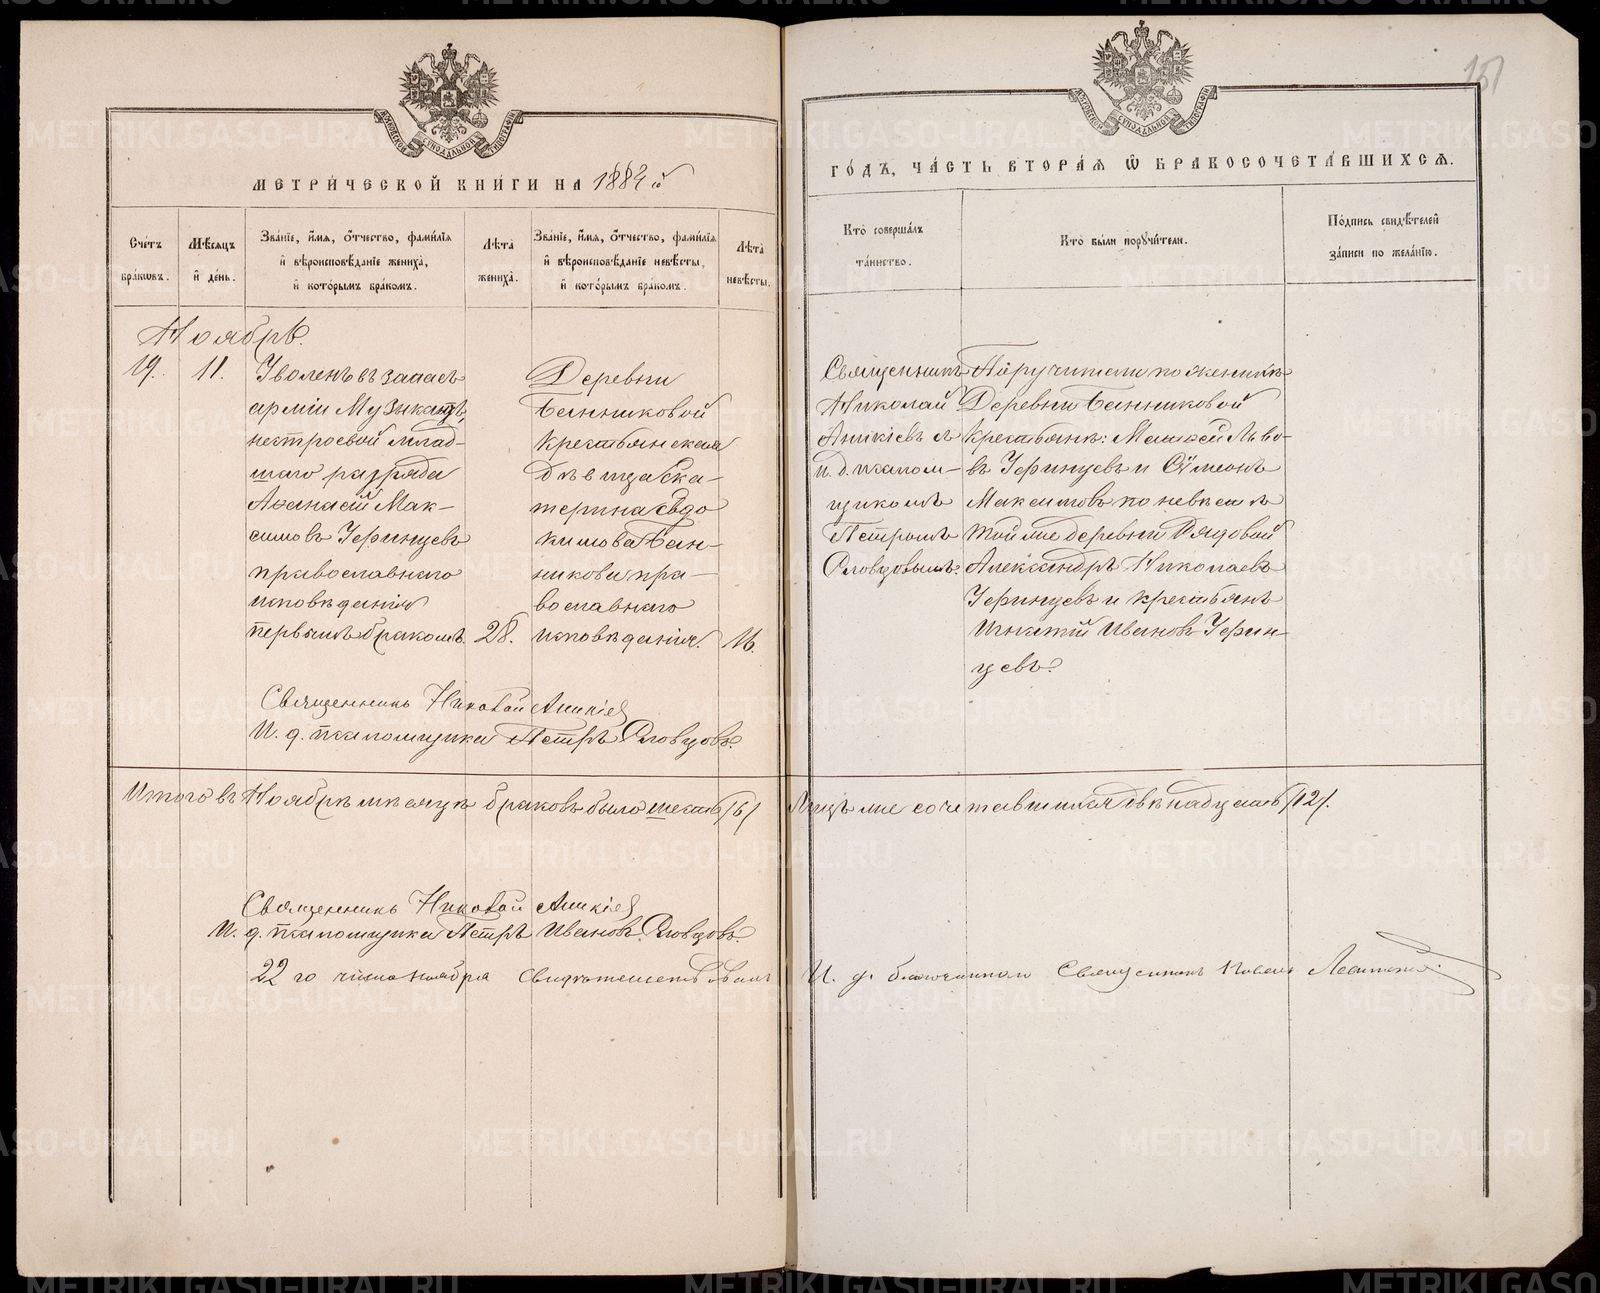 151
МЕТРИЧЕСКОЙ КНИГИ НА 1884 й
ГОДЪ, ЧАСТЬ ВТОРАЯ Ѿ БРАКОСОЧЕТАВШИХСЯ.
Счетъ браковъ.
Мѣсяцъ и день.
Званіе, имя, отчество, фамилія и вѣроисповѣданіе жениха, и которымъ бракомъ.
Лѣта жениха.
Званіе, имя, отчество, фамилія и вѣроисповѣданіе невѣсты, и которымъ бракомъ.
Лѣта невѣсты.
Кто совершалъ таинство.
Кто были поручители.
Подпись свидѣтелей записи по желанію.
Ноябрь.
19. 11.
Уволенъ въ запасъ
арміи Музыкантъ,
нестроевой млад-
шаго разряда
Аѳанасій Мак-
симовъ
православнаго
исповѣданія
первымъ бракомъ. 28.
Деревни
Банниковой
крестьянская
дѣвица Ека-
терина Евдо
кимова Бан-
никова пра-
вославнаго
исповѣданія. 16.
Священникъ
Николай
Аникіевъ с
и. д. псалом-
щикомъ
Петромъ
Словцовымъ.
Поручители по женихѣ
Деревни Банниковой
крестьяне: Моисей Льво-
въ и Сѵмеонъ
Максимовъ по невѣстѣ
той же деревни Рядовой
Александръ Николаевъ
и крестьянъ
Игнатій Ивановъ
цевъ.
Священникъ Николай Аникіев
И. д. псаломщика Петръ Словцовъ.
Итого въ Ноябрѣ мѣсяцѣ браковъ было шесть /6/
Лицъ же сочетавшихся двѣнадцать /12/.
Священникъ Николай Аникіев
И. д. псаломщика Петръ Ивановъ Словцовъ.
22 го числа ноября свидѣтельствовалъ И. д. благочиннаго Священникъ